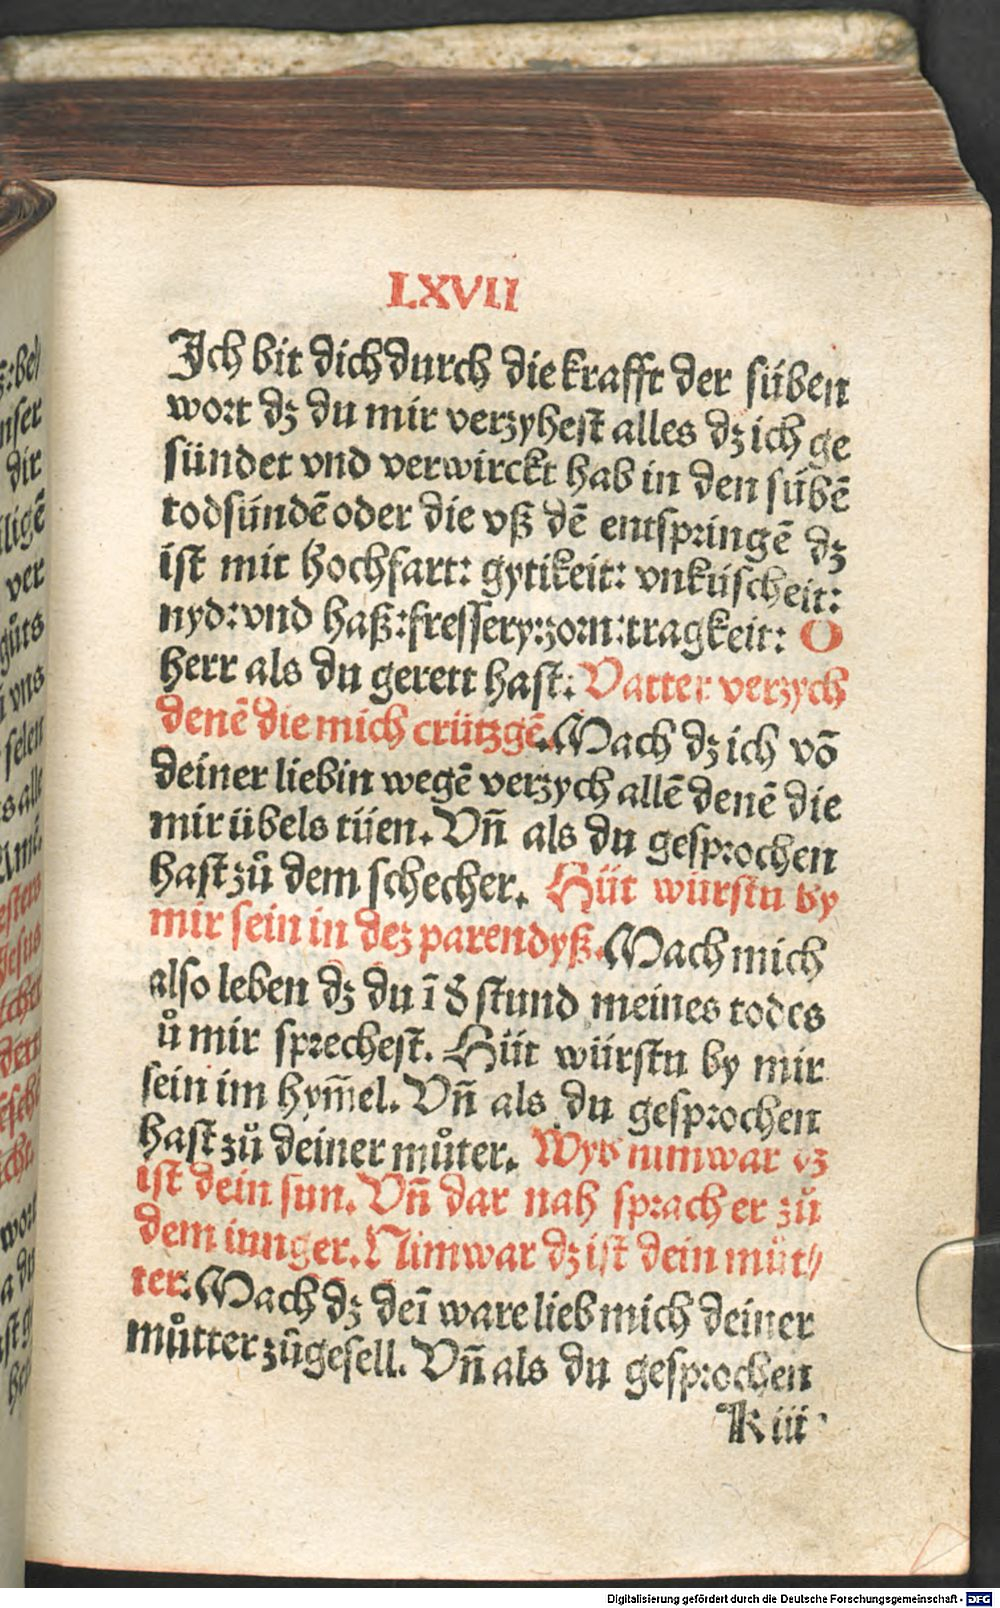 LXVII
Ich bit dich durch die krafft der süben
wort dz du mir verzyhest alles dz ich ge
sündet vnd verwirckt hab in den sübē
todsündē oder die vß dē entspringē dz
ist mit hochfart: gytikeit: vnküscheit:
nyd: vnd haß: fressery: zorn: tragkeit: O
herr als du gerett hast: Vatter verzych
denē die mich crützgē. Mach dz ich vō
deiner liebin wegē verzych allē denē die
mir übels tüen. Vn̄ als du gesprochen
hast zů dem schecher. Hüt würstu by
mir sein in dez parendyß. Mach mich
also leben dz du ī d̕ stund meines todes
ů mir sprechest. Hüt würstu by mir
sein im hym̄el. Vn̄ als du gesprochen
hast zů deiner můter. Wyb nimwar dz
ist dein sun. Vn̄ dar nah sprach er zů
dem iunger. Nimwar dz ist dein müt//
ter. Mach dz deī ware lieb mich deiner
můtter zůgesell. Vn̄ als du gesprochen
K iii
nser
dir
iligē
ver
gůts
vns
selen
s alle
Digitalisierung gefördert durch die Deutsche Forschungsgemeinschaft - DFG